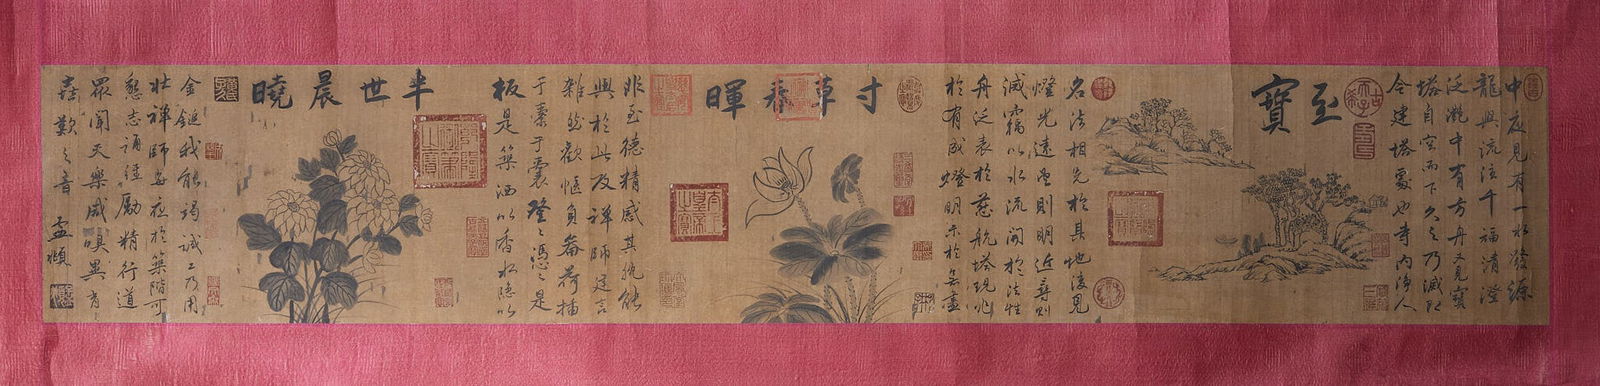 中夜見有一水發源
龍興流注千福清澄
泛灔中有方舟又見寶
塔自空而下久之乃滅即
今建塔處也寺內淨人
至寶
名法相先於其地復見
燈光遠望則明近尋則
滅竊以水流開於法性
舟泛表於慈航塔現兆
於有成燈明示於無盡
寸草春暉
非至德精感其孰能
與於此及禪師建言
雜然歡愜負畚荷插
于橐于囊登〻憑〻是
板是築洒以香水隱以
半世晨曉
金鎚我能竭誠工乃用
壯禪師每夜於築階可
懇志誦經勵精行道
眾聞天樂咸嗅異香
喜歎之音 孟頫